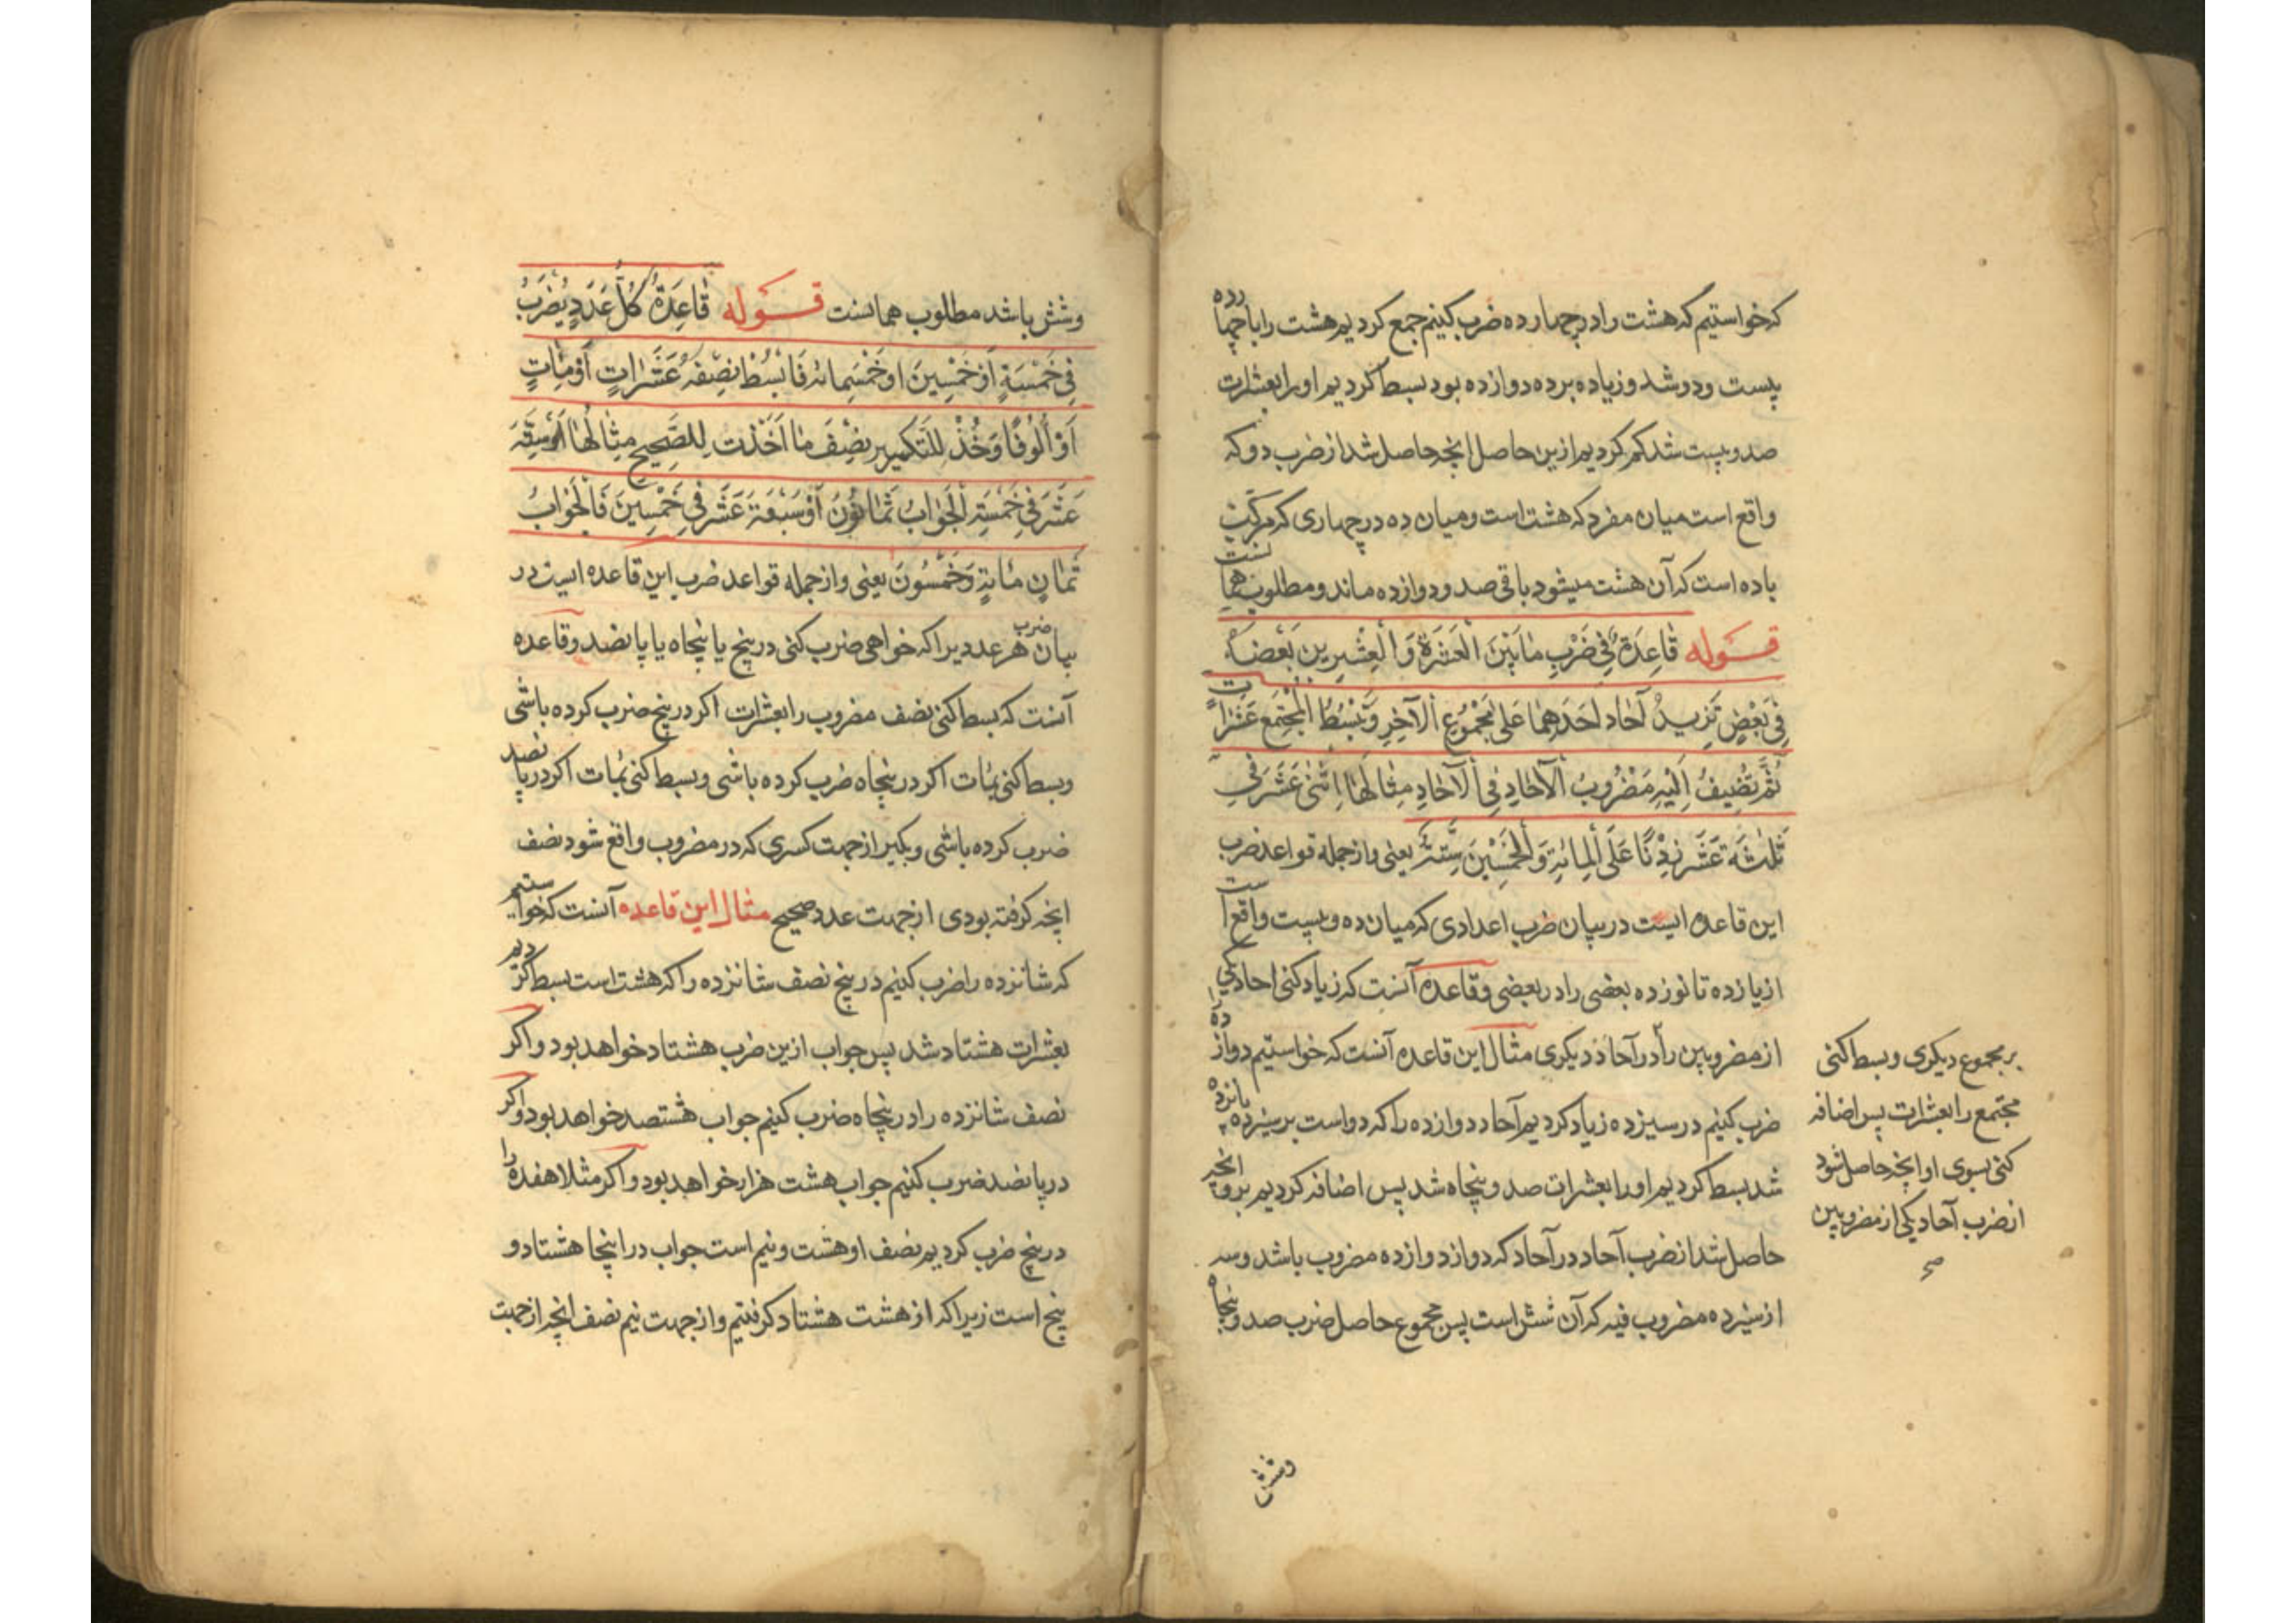 که خواستیم که هشت را در چهارده ضرب کنیم جمع کردیم هشت را با چهارده
بیست و دو شد و زیاده بر ده دوازده بود بسط کردیم او را بعشرات
صد و بیست شد کم کردیم ازین حاصل انچه حاصل شد از ضرب دو که
واقع است میان مفرد که هشت است و میان ده در چهاری که مرکبست
با ده است که آن هشت میشود باقی صد و دوازده ماند و مطلوب همانست
قوله قَاعِدَةٌ فِی ضَرْبِ مَا بَیْنَ الْعَشَرَةِ وَ الْعِشْرِینِ بَعْضُهَا
فِی بَعْضٍ تَزِیدُ آحَادَ اَحَدِهِمَا عَلَی مَجْمُوعِ الْآخِرِ وَ تَبْسُطُ الْمُجْتَمِعَ عَشَرَاتٍ
ثُمَّ تُضِیفُ اِلَیْهِ مَضْرُوبَ الْآحَادِ فِی الْآحَادِ مِثَالُهَا اِثْنَی عَشَرَ فِی
ثَلٰثَةَ عَشَرَ زِدْنَا عَلَی الْمِائَةِ وَ الْخَمْسِینَ سِتَّةً یعنی و از جمله قواعد ضرب
این قاعده ایست در بیان ضرب اعدادی که میان ده و بیست واقع است
از یازده تا نوزده بعضی را در بعضی و قاعده آنست که زیاد کنی احاد یکی را
از مضروبین را در آحاد دیکری مثال این قاعده آنست که خواستیم دوازده
ضرب کنیم در سیزده زیاد کردیم آحاد دوازده را که دو است بر سیزده پانزده
شد بسط کردیم او را بعشرات صد و پنجاه شد پس اضافه کردیم برو انچه
حاصل شد از ضرب آحاد در آحاد که دو از دوازده مضروب باشد و سه
از سیزده مضروب فیه که آن شش است پس مجموع حاصل ضرب صد و پنجاه
بر مجموع دیکری و بسط کنی
مجتمع را بعشرات پس اضافه
کنی بسوی او انچه حاصل شود
از ضرب آحاد یکی از مضروبین
صح
وشش
وشش باشد مطلوب همانست قوله قَاعِدَةٌ کُلُّ عَدَدٍ یُضْرَبُ
فِی خَمْسَةٍ اَوْ خَمْسِینَ او خَمْسِمائه فَابْسُطْ نِصْفَهُ عَشَرَاتٍ اَوْ مِئَاتٍ
اَوْ اُلُوفًا وَ خُذْ لِلْتَکسِیرِ نِصْفَ مَا اَخَذْتَ لِلصَّحِیحِ مِثَالُهَا سِتَّةَ
عَشَرَ فِی خَمْسَةٍ الْجَوَابُ ثَمَانُونَ اَوْ سَبْعَةَ عَشَرَ فِی خَمْسِینَ فَالْجَوَابُ
ثَمَانِ مِائَةٍ وَ خَمْسُونَ یعنی و از جمله قواعد ضرب این قاعده ایست در
بیان ضرب هر عددیرا که خواهی ضرب کنی در پنج یا پنجاه یا پانصد و قاعده
آنست که بسط کنی نصف مضروب را بعشرات اکر در پنج ضرب کرده باشی
و بسط کنی بمات اکر در پنجاه ضرب کرده باشی و بسط کنی بمات اکر در پانصد
ضرب کرده باشی و بکیر از جهت کسری که در مضروب واقع شود نصف
انچه کرفته بودی از جهت عدد صحیح مثال این قاعده آنست که خواستیم
که شانزده را ضرب کنیم در پنج نصف شانزده را که هشت است بسط کردیم
بعشرات هشتاد شد پس جواب ازین ضرب هشتاد خواهد بود و اکر
نصف شانزده را در پنجاه ضرب کنیم جواب هشتصد خواهد بود و اکر
در پانصد ضرب کنیم جواب هشت هزار خواهد بود و اکر مثلا هفده را
در پنج ضرب کردیم نصف او هشت و نیم است جواب در اینجا هشتاد و
پنج است زیرا که از هشت هشتاد کرفتیم و از جهت نیم نصف انچه از جهت